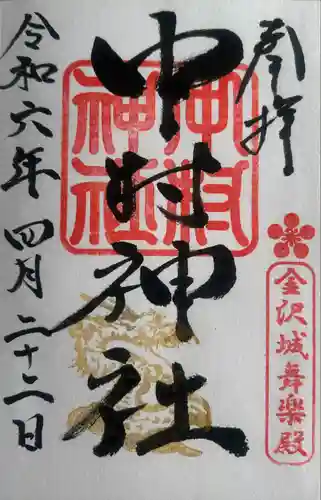 奉拝
中村神社
中村神社
金沢城舞楽殿
令和六年四月二十二日